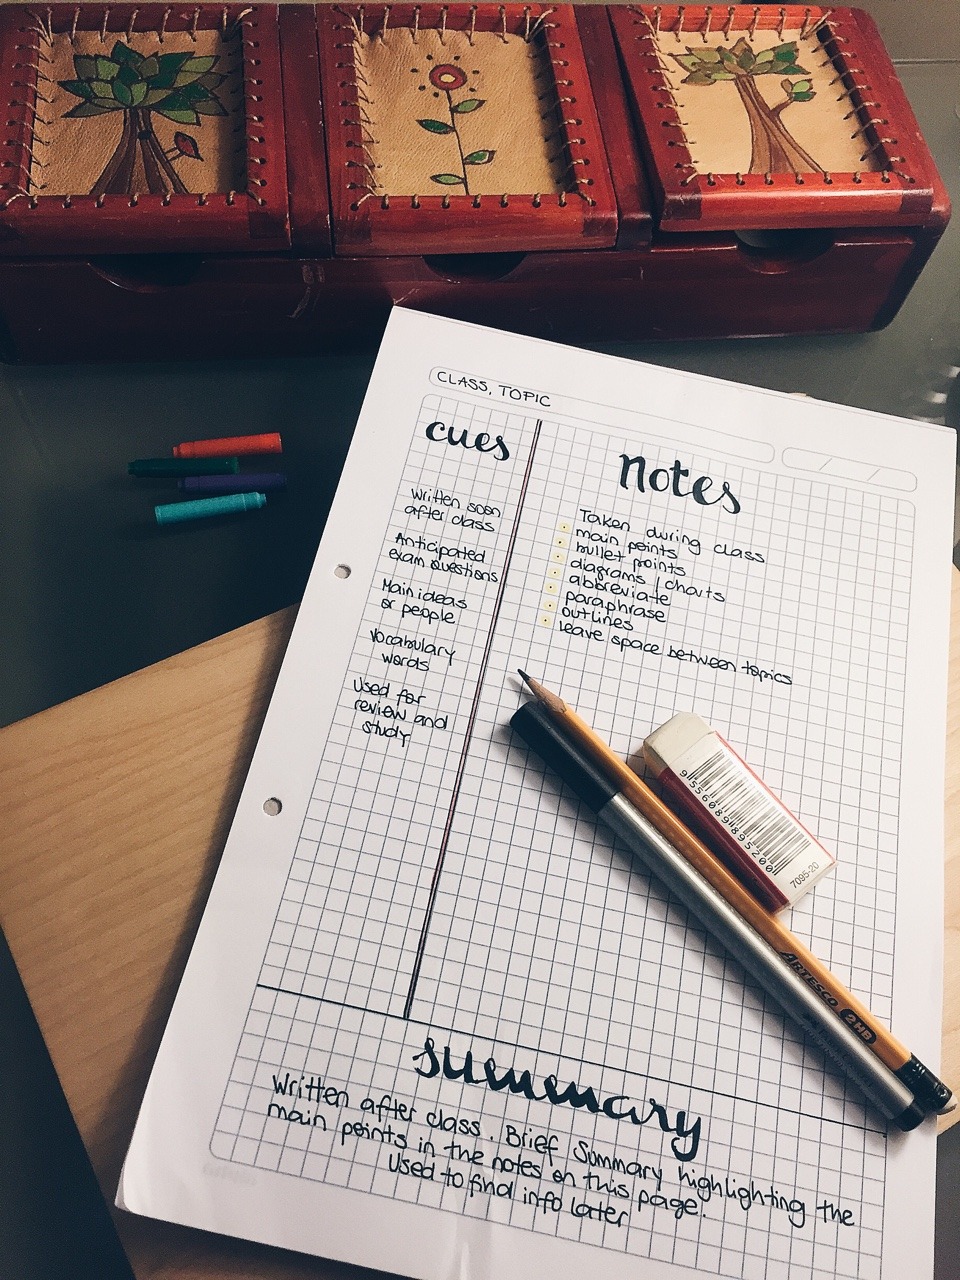 CLASS, TOPIC
cues
Written soon
after class
Anticipated
exam questions
Main ideas
or people
Vocabulary
words
Used for
review and
study
notes
Taken during class
main points
bullet points
diagrams / charts
abbreviate
paraphrase
outlines
leave space between topics
summary
Written after class. Brief Summary highlighting the
main points in the notes on this page.
Used to find info later
9 556089 895200
7095-20
ARTESCO 2 HB